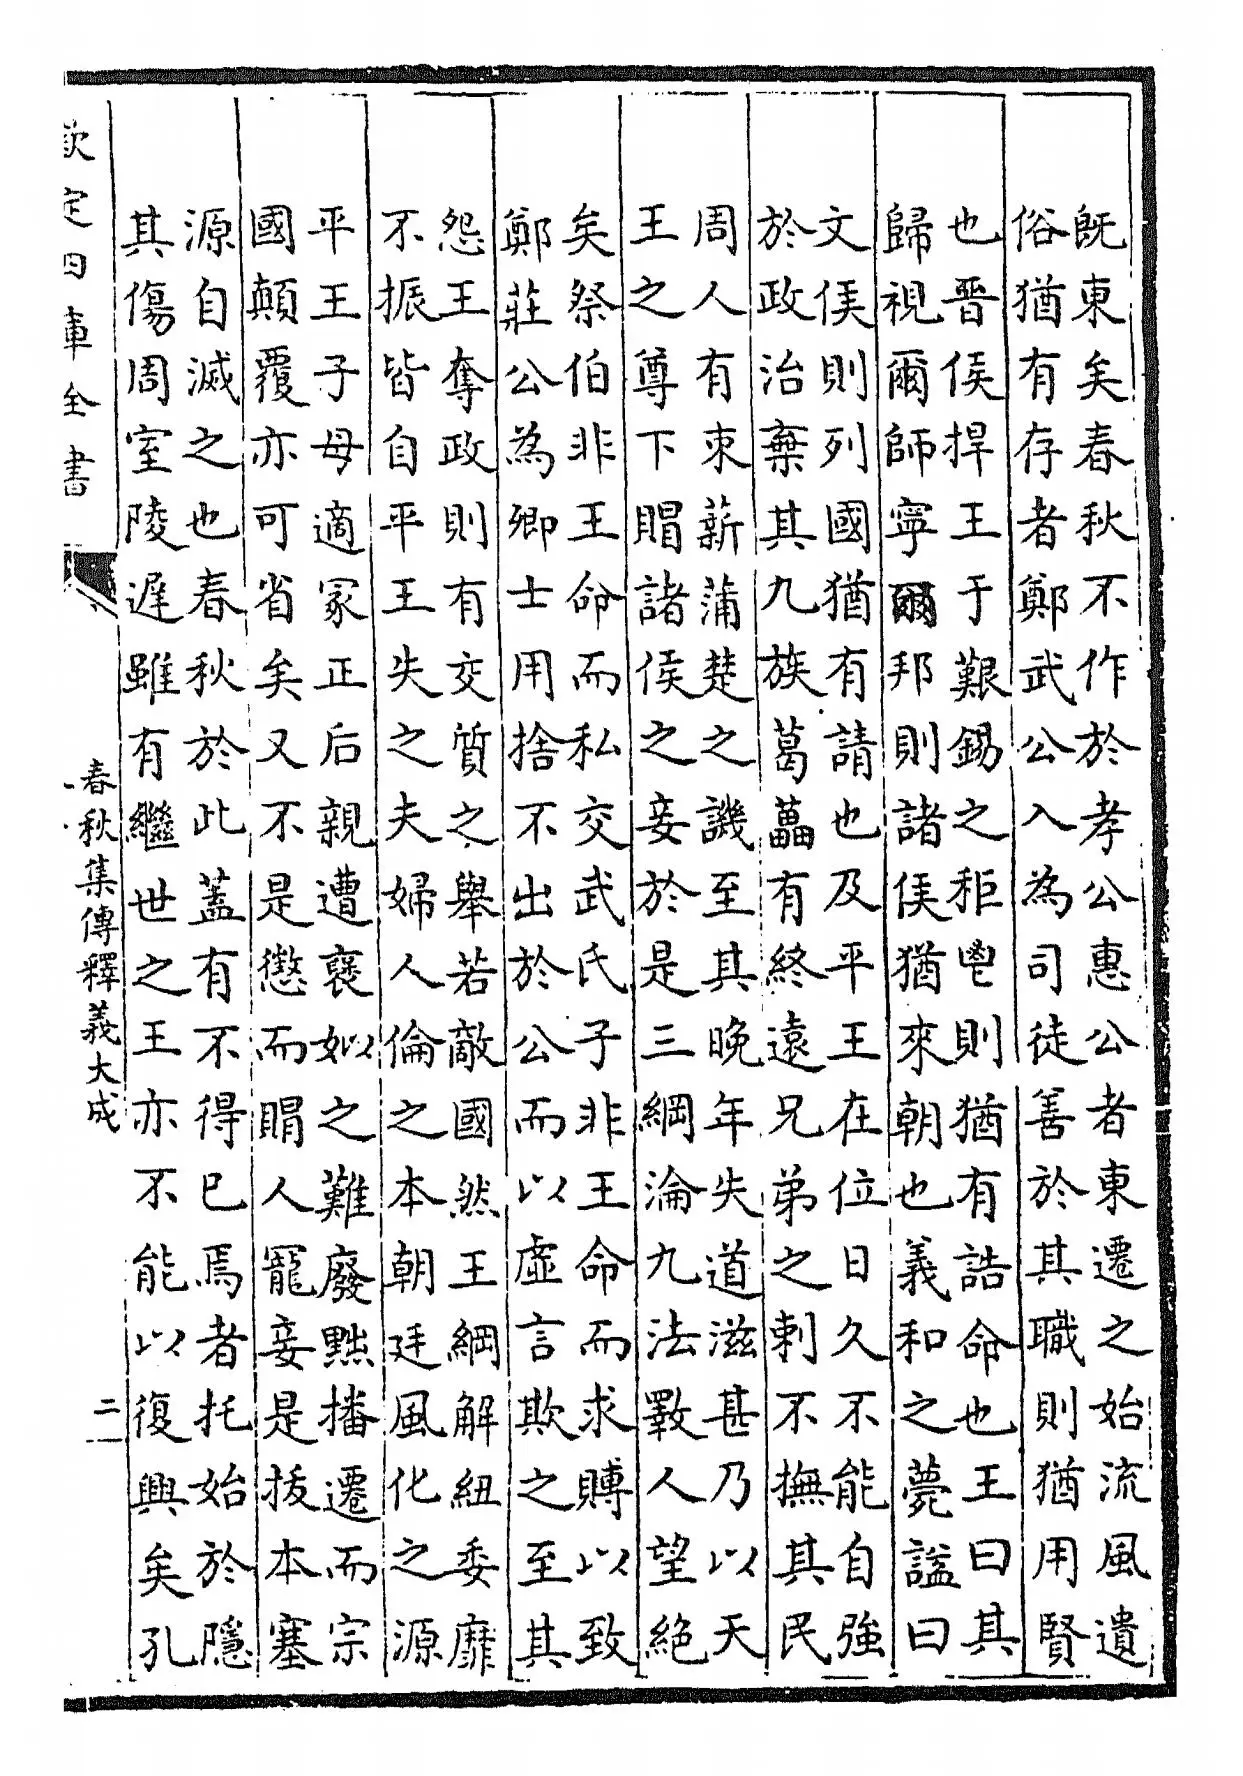 既東矣春秋不作於孝公惠公者東遷之始流風遺
俗猶有存者鄭武公入為司徒善於其職則猶用賢
也晉侯捍王于艱錫之秬鬯則猶有誥命也王曰其
歸視爾師寧爾邦則諸侯猶來朝也義和之薨諡曰
文侯則列國猶有請也及平王在位日久不能自強
於政治棄其九族葛藟有終遠兄弟之刺不撫其民
周人有束薪蒲楚之譏至其晚年失道滋甚乃以天
王之尊下賵諸侯之妾於是三綱淪九法斁人望絕
矣祭伯非王命而私交武氏子非王命而求賻以致
鄭莊公為卿士用捨不出於公而以虛言欺之至其
怨王奪政則有交質之舉若敵國然王綱解紐委靡
不振皆自平王失之夫婦人倫之本朝廷風化之源
平王子母適冢正后親遭褒姒之難廢黜播遷而宗
國顛覆亦可省矣又不是懲而賵人寵妾是拔本塞
源自滅之也春秋於此蓋有不得已焉者托始於隱
其傷周室陵遲雖有繼世之王亦不能以復興矣孔
欽定四庫全書
春秋集傳釋義大成
二